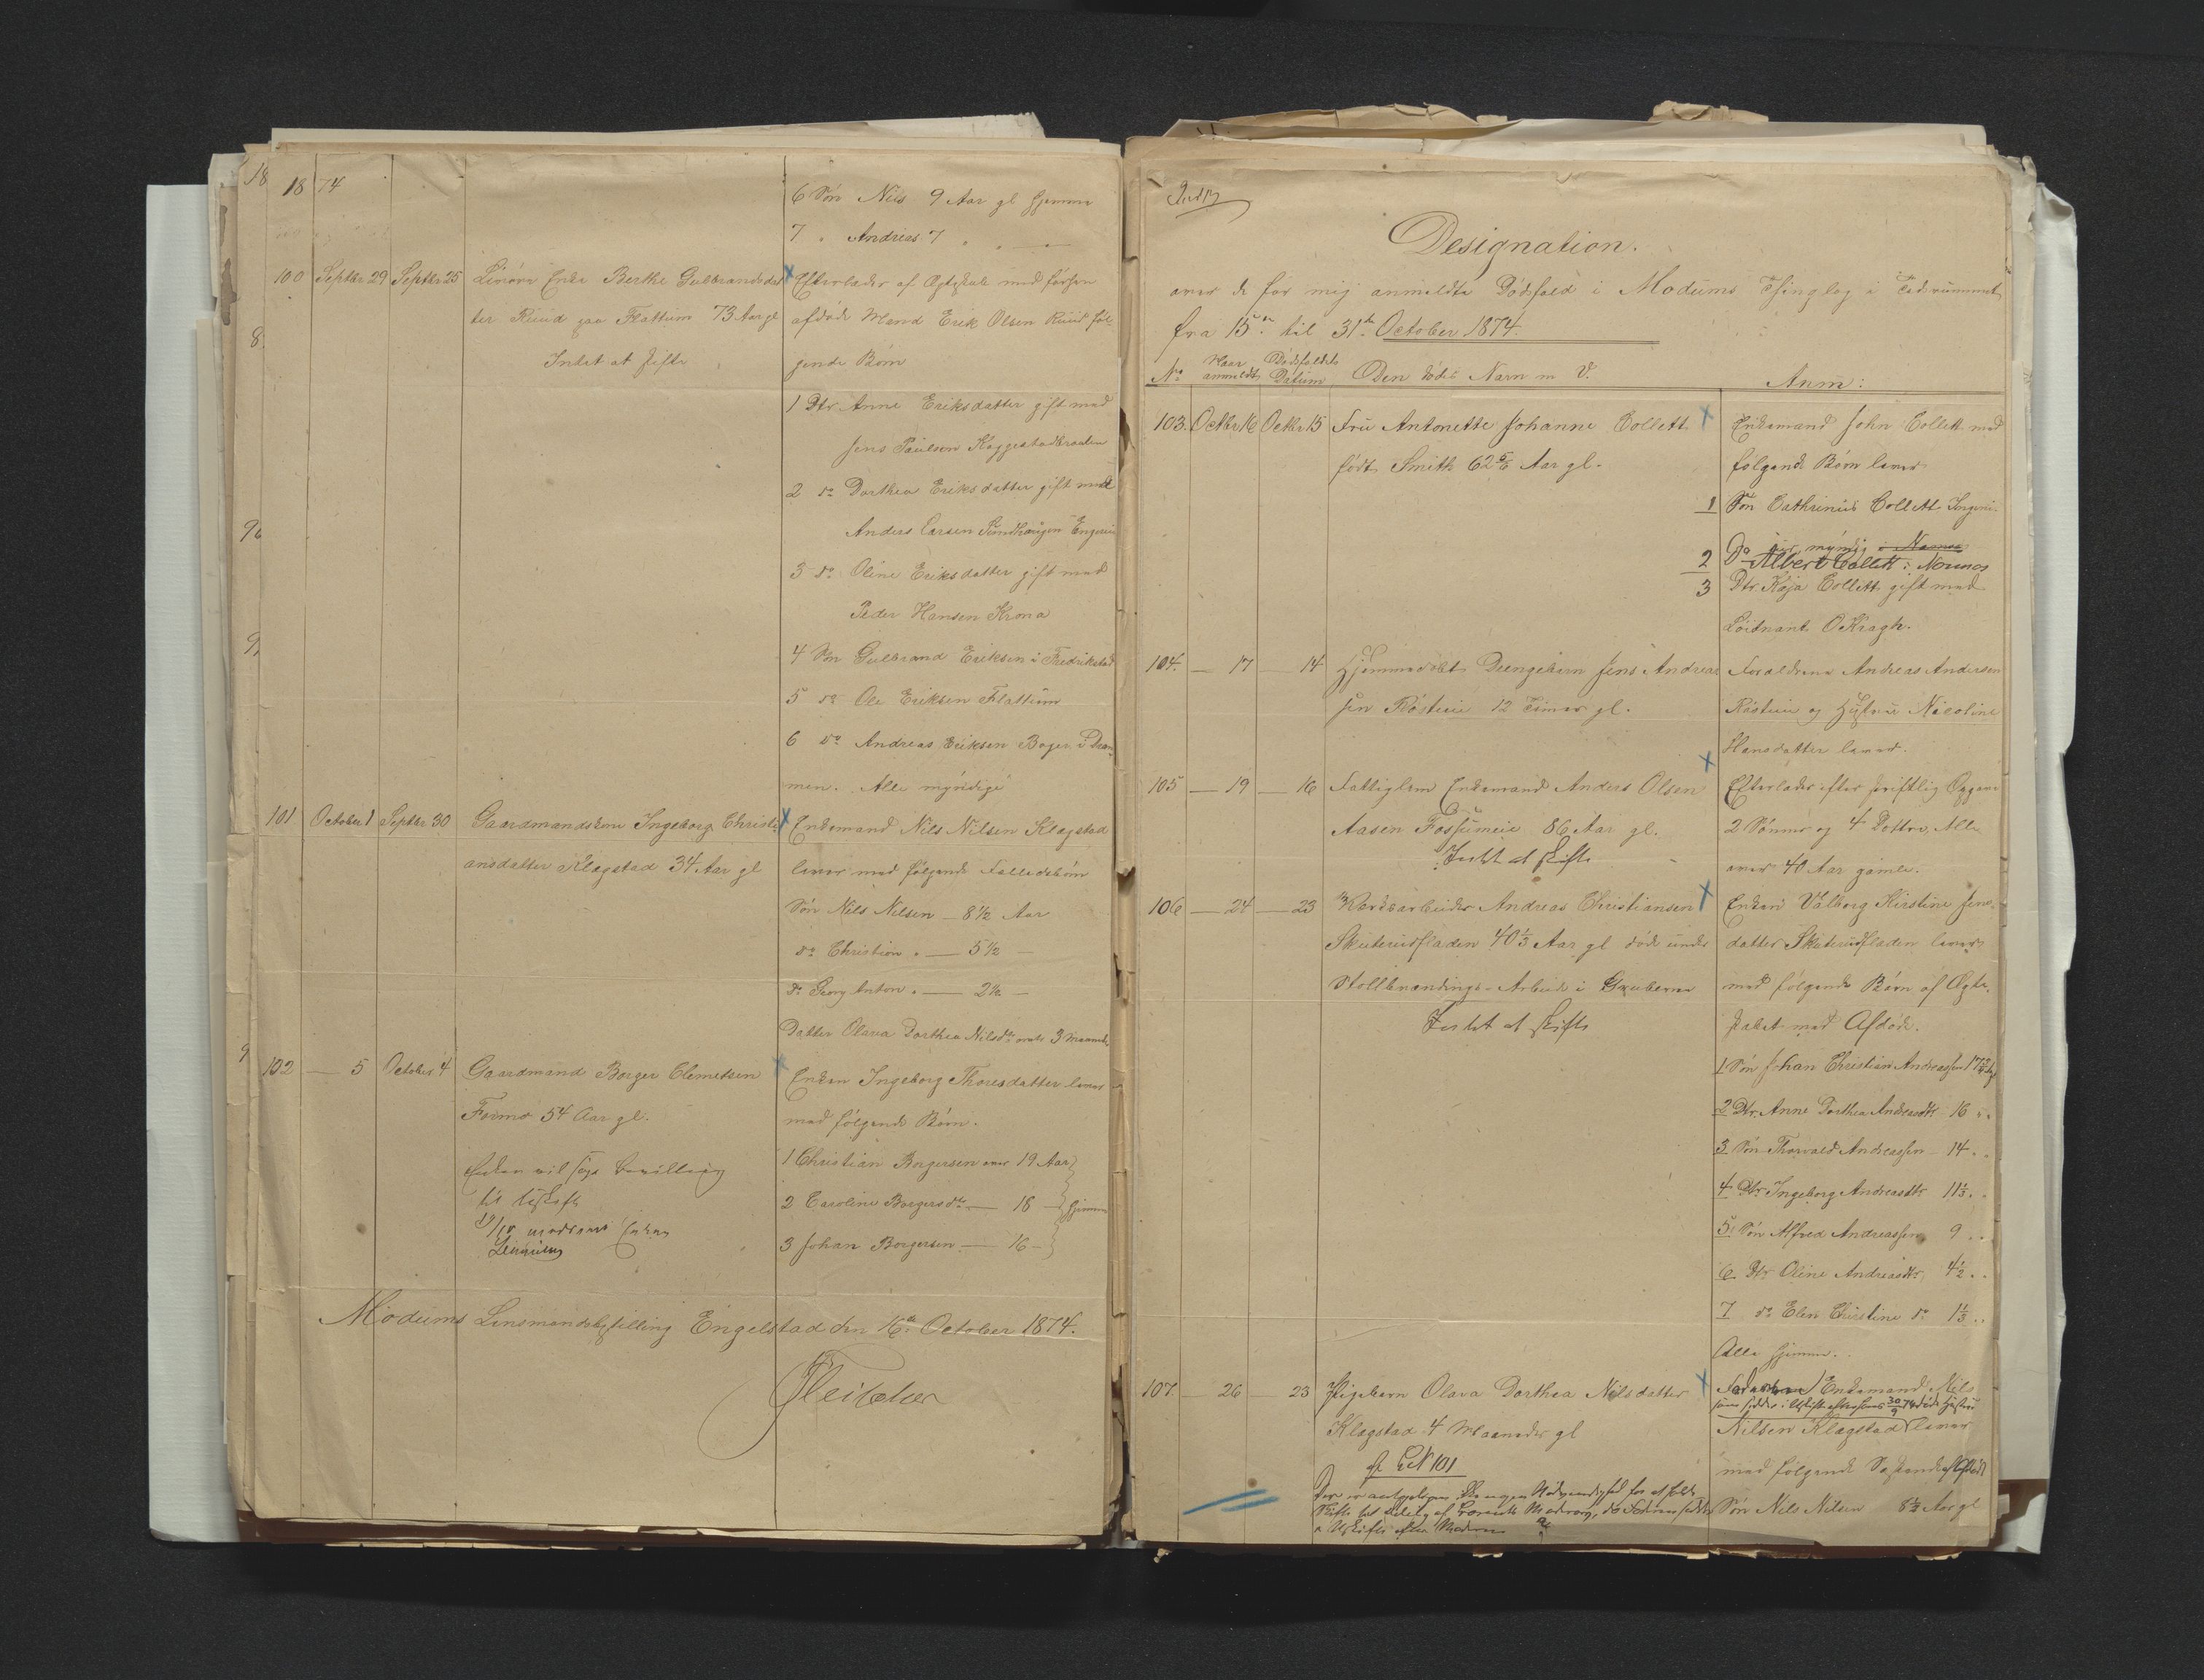 18 74
6 Søn Nils 9 Aar gl hjemme
7 " Andreas 7 " " —
100 Septbr 29 Septbr 25 Enke Berthe Gulbrandsdat
ter Ruud paa Flattum 73 Aar gl
Intet at skifte
Efterlader af Ægteskab med forhen
afdøde Mand Erik Olsen Ruud føl-
gende Børn
1 Dtr Anne Eriksdatter gift med
Jens Paulsen
2 do Dorthea Eriksdatter gift med
Anders Larsen
3 do Oline Eriksdatter gift med
Peder Hansen Krona
4 Søn Gulbrand Eriksen i Fredrikstad
5 do Ole Eriksen Flattum
6 do Andreas Eriksen Bager i Dram
men. Alle myndige
101 October 1 Septbr 30 Gaardmandskone Ingeborg Christi
ansdatter Klagstad 34 Aar gl
Enkemand Nils Nilsen Klagstad
lever med følgende Fællesbørn
Søn Nils Nilsen — 8½ Aar
do Christian " — 5½ —
do Georg Anton " — 2½ —
Datter Olava Dorthea Nilsdtr 3 Maaneder
102 — 5 October 4 Gaardmand Borger Clemetsen
Formo 54 Aar gl.
Enken vil søge Bevilling
til Uskifte
Enken Ingeborg Thoresdatter lever
med følgende Børn.
1 Christian Borgersen over 19 Aar
2 Caroline Borgersdtr — 18 — hjemme
3 Johan Borgersen — 16 —
Modums Lensmandsbestilling Engelstad den 16de October 1874.
Designation.
over de for mig anmeldte Dødsfald i Modums Thinglag i Tidsrummet
fra 15de til 31te October 1874.
No Naar anmeldt Dødsfaldets Datum Den dødes Navn m V. Anm:
103. Octbr 16 Octbr 15 Fru Antonette Johanne Collett
født Smith 62 5/6 Aar gl.
Enkemand John Collett med
følgende Børn lever
1 Søn Cathrinus Collett Ingeni-
eur, myndig i Namsos
2 Do Albert Collett i Namsos
3 Dtr Kaja Collett gift med
Løitnant O Kragh.
104. — 17 — 14 Hjemmedøbt Drengebarn Jens Andreas
sen 12 Timer gl.
Forældrene Andreas Andersen
og Hustru Nicoline
Hansdatter lever.
105 — 19 — 16 Fattiglem Enkemand Anders Olsen
Aasen Fossumeie 86 Aar gl.
Intet at skifte
Efterlader efter skriftlig Opgave
2 Sønner og 4 Døttre, Alle
over 40 Aar gamle.
106 — 24 — 23 Andreas Christiansen
Skuterudfladen 40⅓ Aar gl døde under
Arbeide i Gruberne
Intet at skifte
Enken Valborg Kirstine Jens-
datter Skuterudfladen lever
med følgende Børn af Ægte-
skabet med Afdøde.
1 Søn Johan Christian Andreassen
2 Dtr. Anne Dorthea Andreasdtr 16 " "
3 Søn Thorvald Andreassen — 14 " "
4 Dtr Ingeborg Andreasdtr 11½ " "
5. Søn Alfred Andreassen 9 " "
6. Dtr Oline Andreasdtr 4½ " "
7 do Elen Christine do 1⅓ " "
Alle hjemme.
107. — 26 — 23 Pigebarn Olava Dorthea Nilsdatter
Klagstad 4 Maaneder gl
cf No 101
Enkemand Nils
Nilsen Klagstad lever
med følgende Søskende af Afdøde
Søn Nils Nilsen 8½ Aar gl